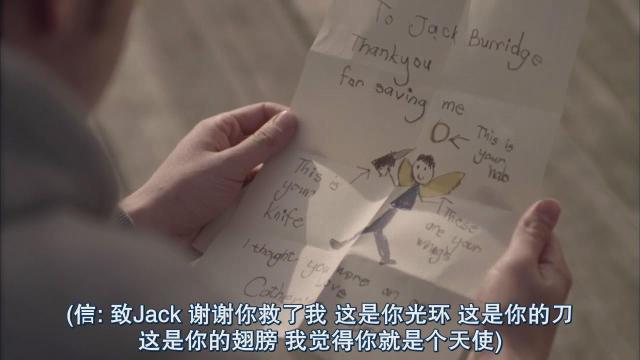 To Jack Burridge
Thankyou
for saving me
This is
your
halo
This is
your
Knife
These
are your
wings
I thought you were an
love
(信: 致Jack 谢谢你救了我 这是你光环 这是你的刀
这是你的翅膀 我觉得你就是个天使)